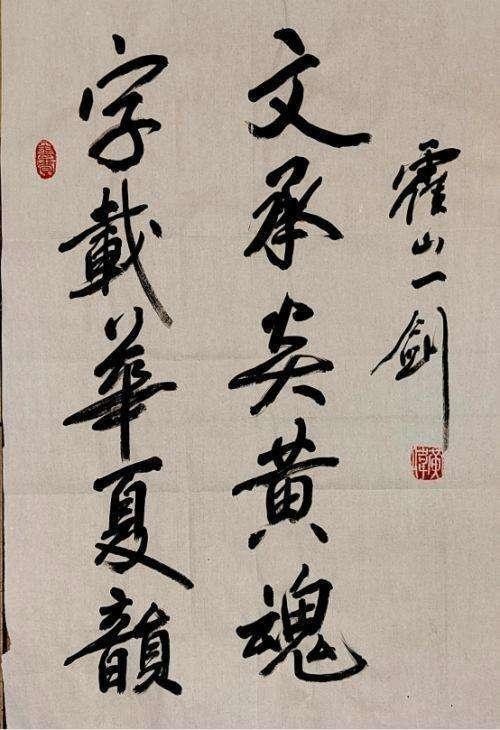 霍山一劍
文承炎黃魂
字載華夏韻